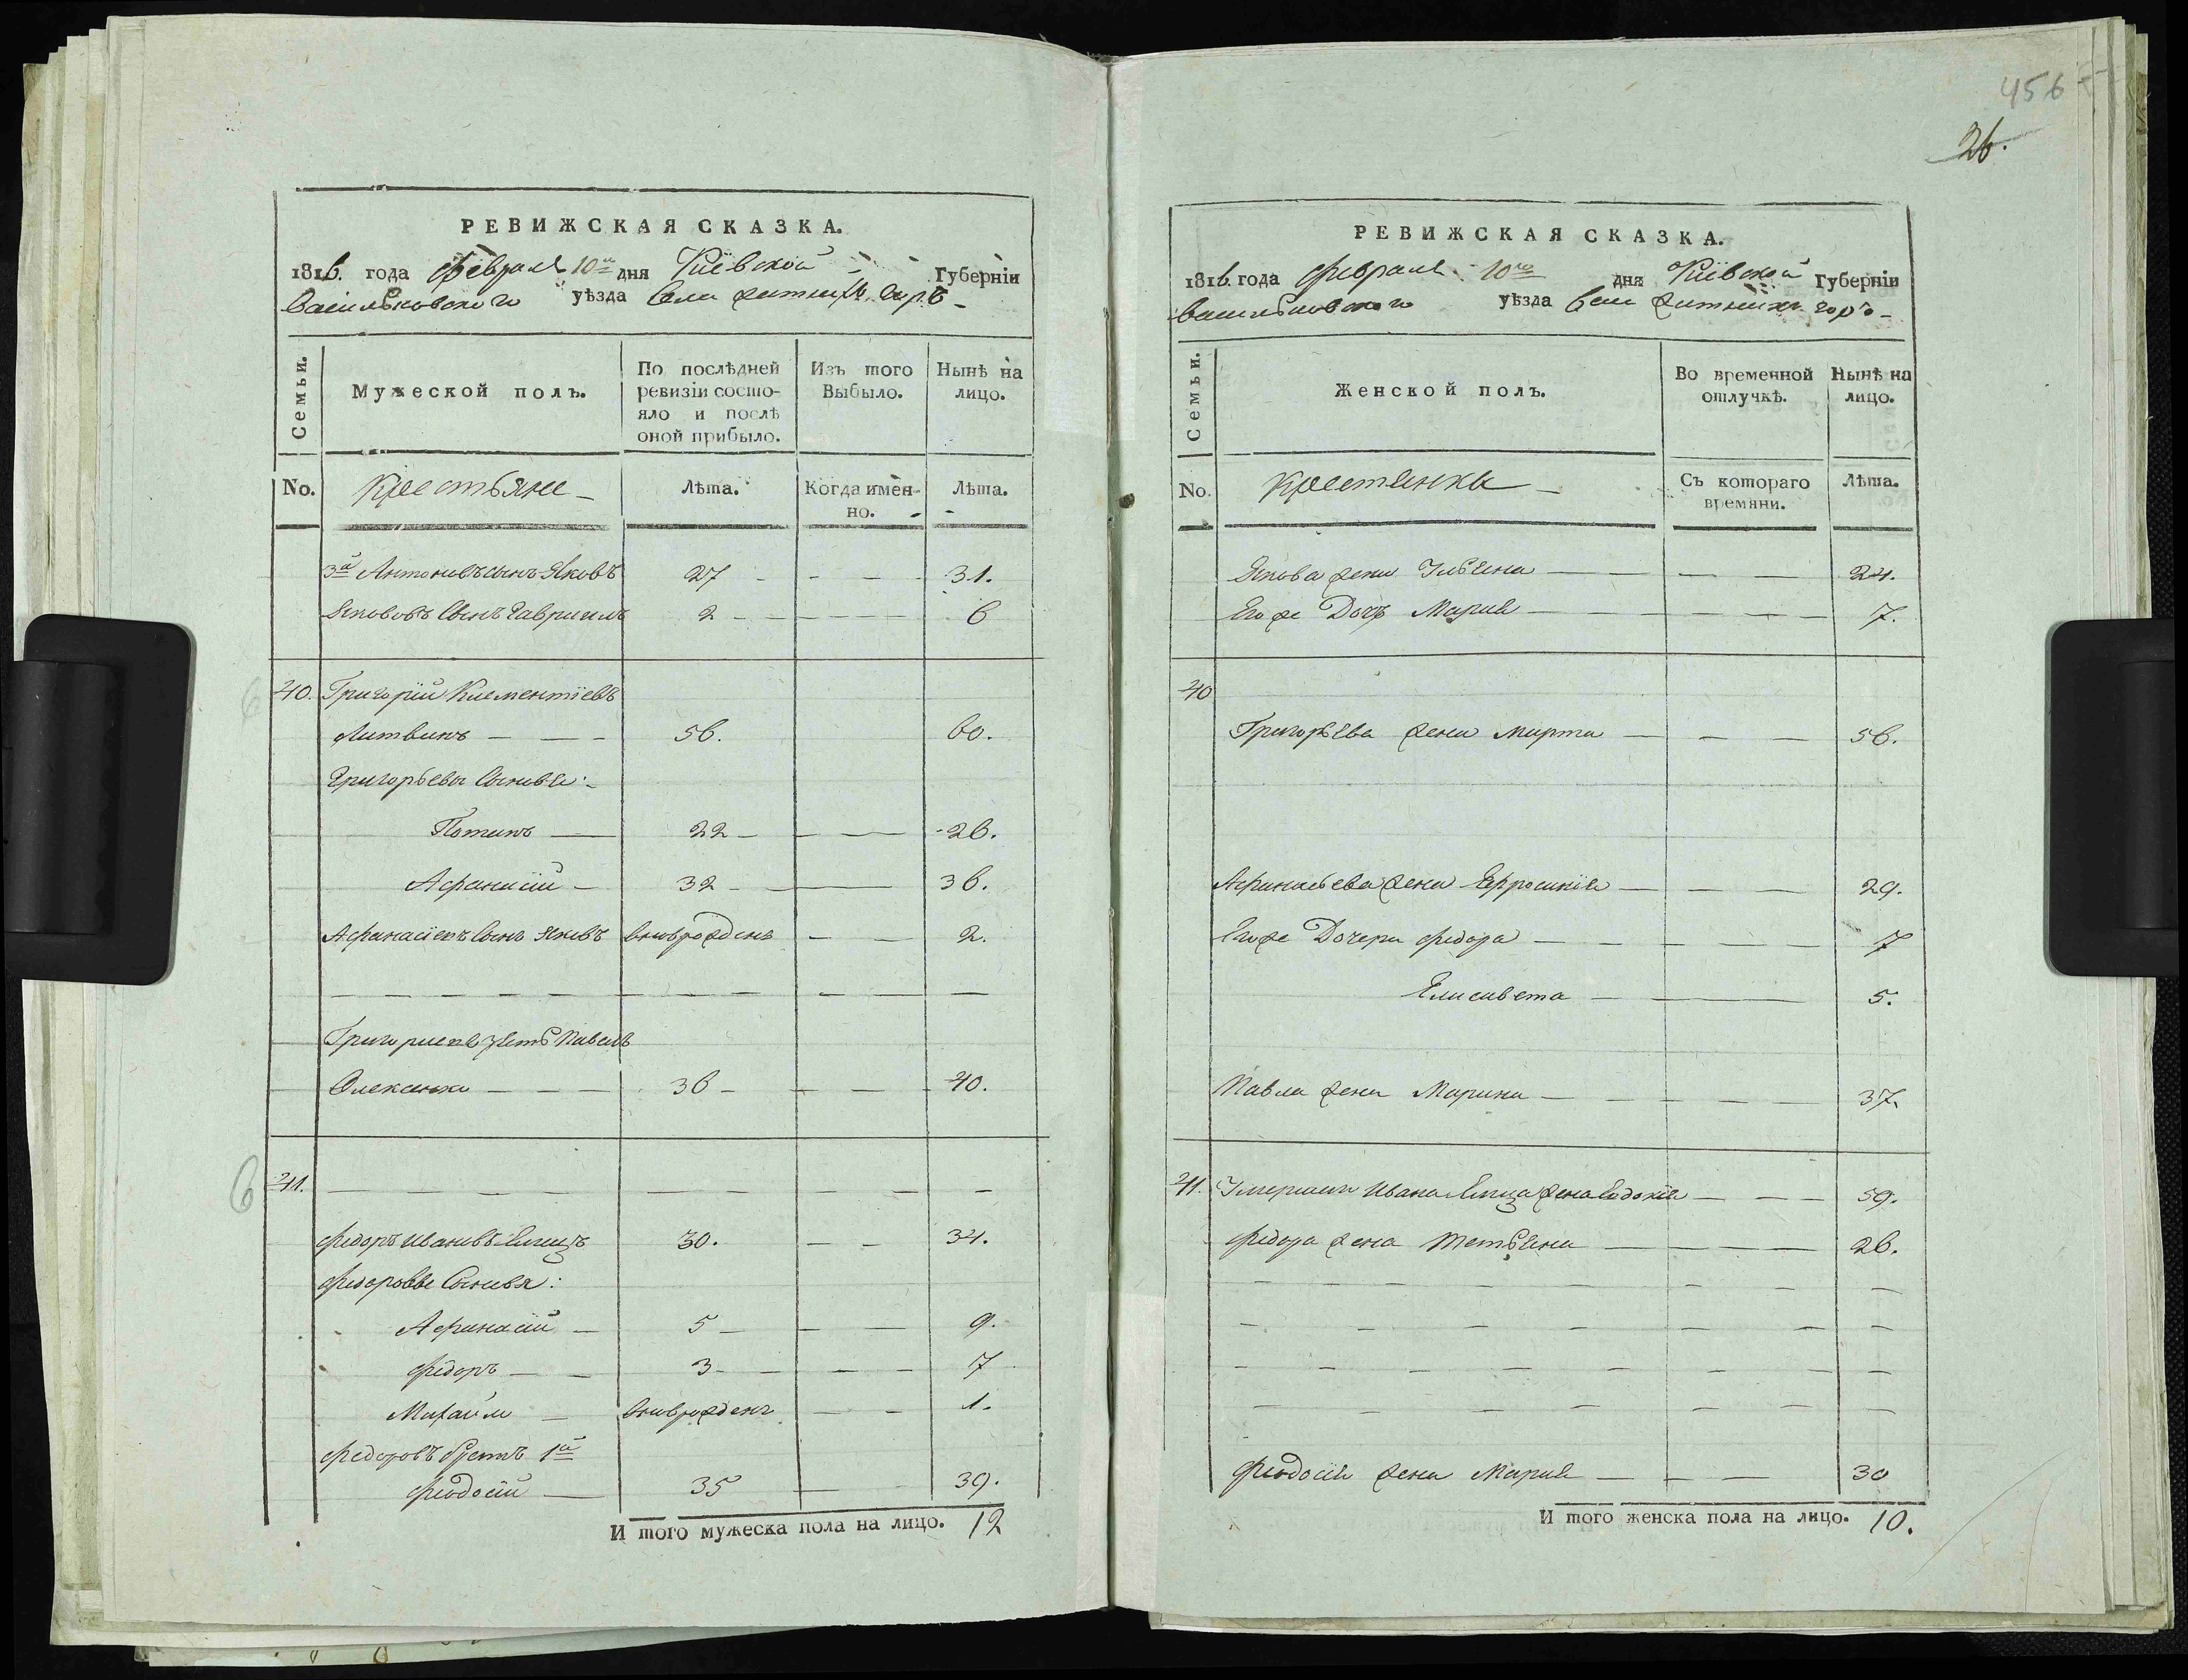 456
26.
РЕВИЖСКАЯ СКАЗКА.
1816. года февраля 10го дня Кіевской Губерніи
Васильковского уѣзда Села Житнихъ горъ
Семьи.
Мужеской полъ.
По послѣдней ревизіи состояло и послѣ оной прибыло.
Изъ того Выбыло.
Нынѣ на лицо.
No. Крестьяне
Лѣта.
Когда имен-но.
Лѣта.
3й Антоновъ сынъ Яковъ 27 31.
Якововъ Сынъ Гавриилъ 2 6
40. Григорій Климентіевъ
Литвинъ 56. 60.
Григорьевы Сыновья:
Потапъ 22 26.
Афанасій 32 36.
Афанасіевъ Сынъ Яковъ вновьрожденъ 2.
Григориевъ зять Павелъ
Олексенко 36 40.
41.
Федоръ Ивановъ 30. 34.
Федоровы Сыновя:
Афанасій 5 9.
Федоръ 3 7
Михайло вновьрожденъ 1.
Федоровъ братъ 1й
Феодосій 35 39.
И того мужеска пола на лицо. 12
РЕВИЖСКАЯ СКАЗКА.
1816. года февраля 10го дня Кіевской Губерніи
Васильковского уѣзда Села Житнихъ горъ
Семьи.
Женской полъ.
Во временной отлучкѣ.
Нынѣ на лицо.
No. Крестянки
Съ котораго времяни.
Лѣта.
Якова жена Ульяна 24.
Его же Дочь Марія 7.
40
Григорьева жена Марта 56.
Афанасьева жена Ефросинія 29.
Его же Дочери Федора 7
Елисавета 5.
Павла жена Марина 37.
41. Умершаго Ивана жена Евдокія 59.
Федора жена Тетьяна 26.
Феодосія жена Марія 30
И того женска пола на лицо. 10.